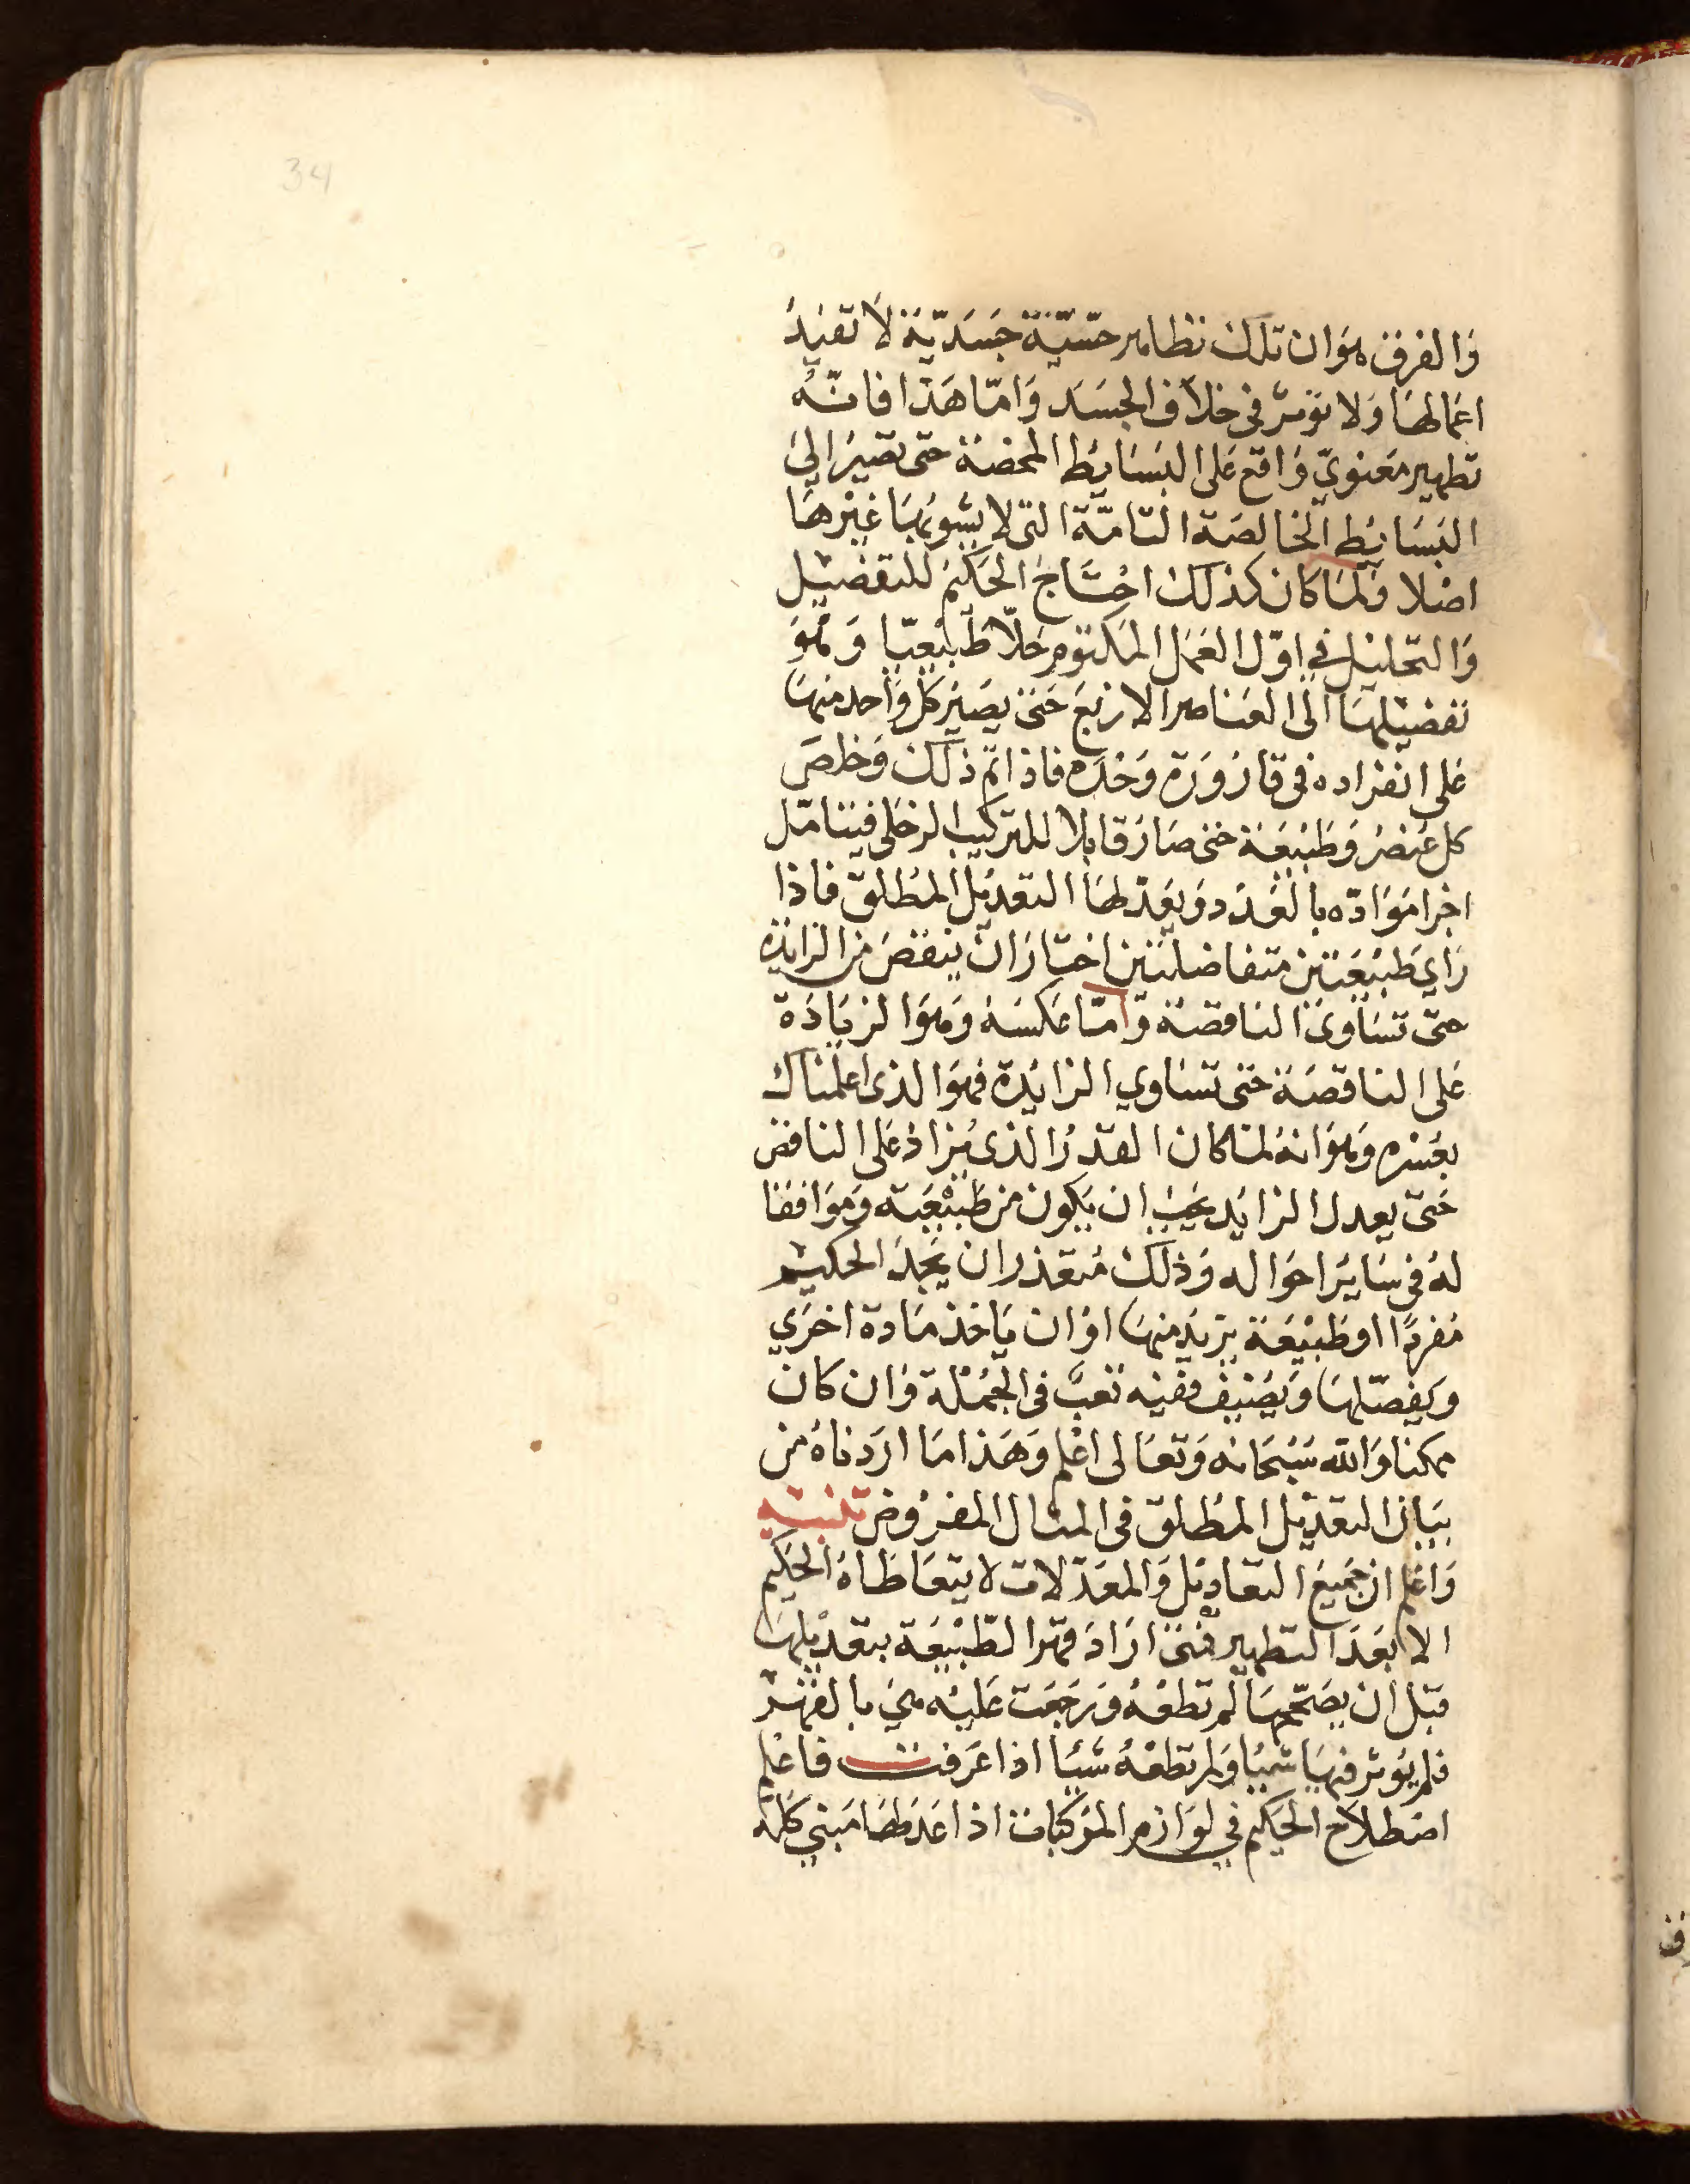 34
وَالفرق هوَان تلك تطاهير حسّيّة جَسَديّة لا تفيدُ
اعمالها وَلا تؤثر فى خلاف الجسَد وَامّا هَذا فانّهُ
تطهير مَعنويّ وَاقع عَلى البسَايط المحضة حتى تصيرَ الى
البَسَايط الخالصَة التامّة التى لا يشوبها غيْرهَا
اصْلا وَلمَا كان كذلك احْتاجَ الحَكيم للتفصيل
وَالتحليل في اوّل العَمَل المكتوم حَلاّ طبيعيّا وَهُوَ
تفصيلهَا الى العَناصر الاربَع حَتى يصَير كل وَاحد منهَا
عَلى انفراده فى قارُورَة وَحْدَه فاذا تم ذلك وَخلصَ
كل عُنصُر وَطَبيْعَة حَتى صَارَ قابلا للتركيب فيتامّل
اجْرا مَوَادّه بالعَدَد وَيعَدّ لهَا التعديْل المطلق فاذا
رَاي طَبيْعَتين متفاضلتين اختارَ ان ينقصَ من الزايدة
حتى تسَاوى الناقصَة وَامّا عَكسَهُ وَهوَ الزيَادَة
عَلى الناقصَة حَتى تسَاوي الزايدة فهوَ الذى اعلمْناك
بعُسْره وَهوَ انهُ لمّا كان القدْرُ الذى يُزادُ عَلى الناقص
حَتى يعدل الزايد يجبُ ان يَكون من طَبيْعَته وَموَافقا
لهُ فى سَايرَ احوَاله وَذلك مُتعَذر ان يَجدَ الحكيم
مُفردًا او طَبيْعَة يزيد منهَا اوْ ان يَاخذ مَادة اخرَي
وَيفصّلهَا وَيُضيْف ففيْه تعَبٌ فى الجمْلة وَان كان
ممكنا وَالله سُبْحَانه وَتعَالى اعْلم وَهَذا مَا ارَدناهُ من
بيَان التعديْل المطلق فى المثال المفرُوض تنبيْه
وَاعْلم ان جَميعَ التعاديل وَالمعَدّلات لا يتعَاطَاهُ الحَكيم
الا بَعَدَ التطهير فمتى ارَادَ قهرَ الطّبيْعَة بتعديلهَا
قبْل ان يصَحّحهَا لم تطعْهُ وَرَجَعَت عَليْه هيَ بالقهْر
فلم يُؤثر فيهَا شَيْئا وَلم تطعْهُ شَيْئا اذا عَرَفت فاعْلم
اصْطلاحَ الحَكيم في لوَازم المرَكبات اذا عَدَلهَا مَبني كلهُ